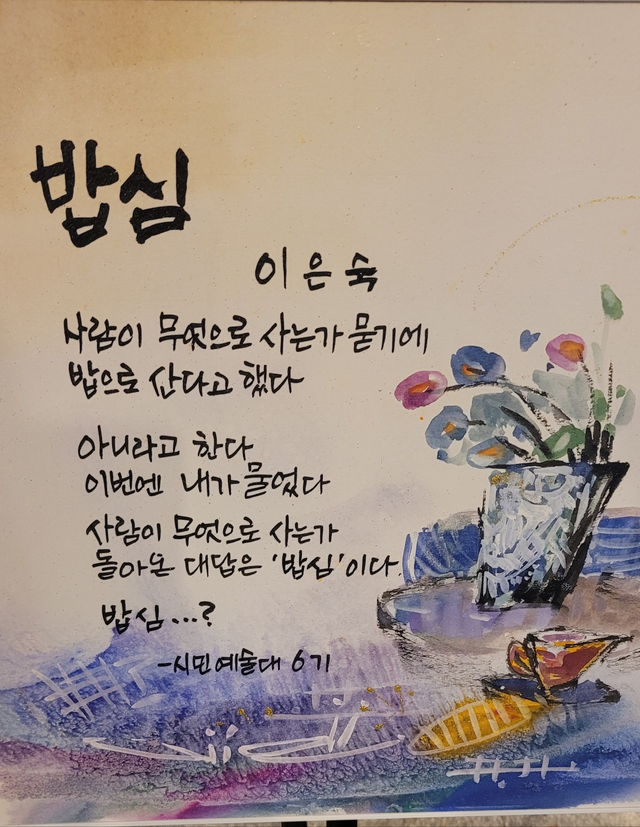 밥심
이은숙
사람이 무엇으로 사는가 묻기에
밥으로 산다고 했다
아니라고 한다
이번엔 내가 물었다
사람이 무엇으로 사는가
돌아온 대답은 '밥심'이다.
밥심...?
-시민예술대 6기